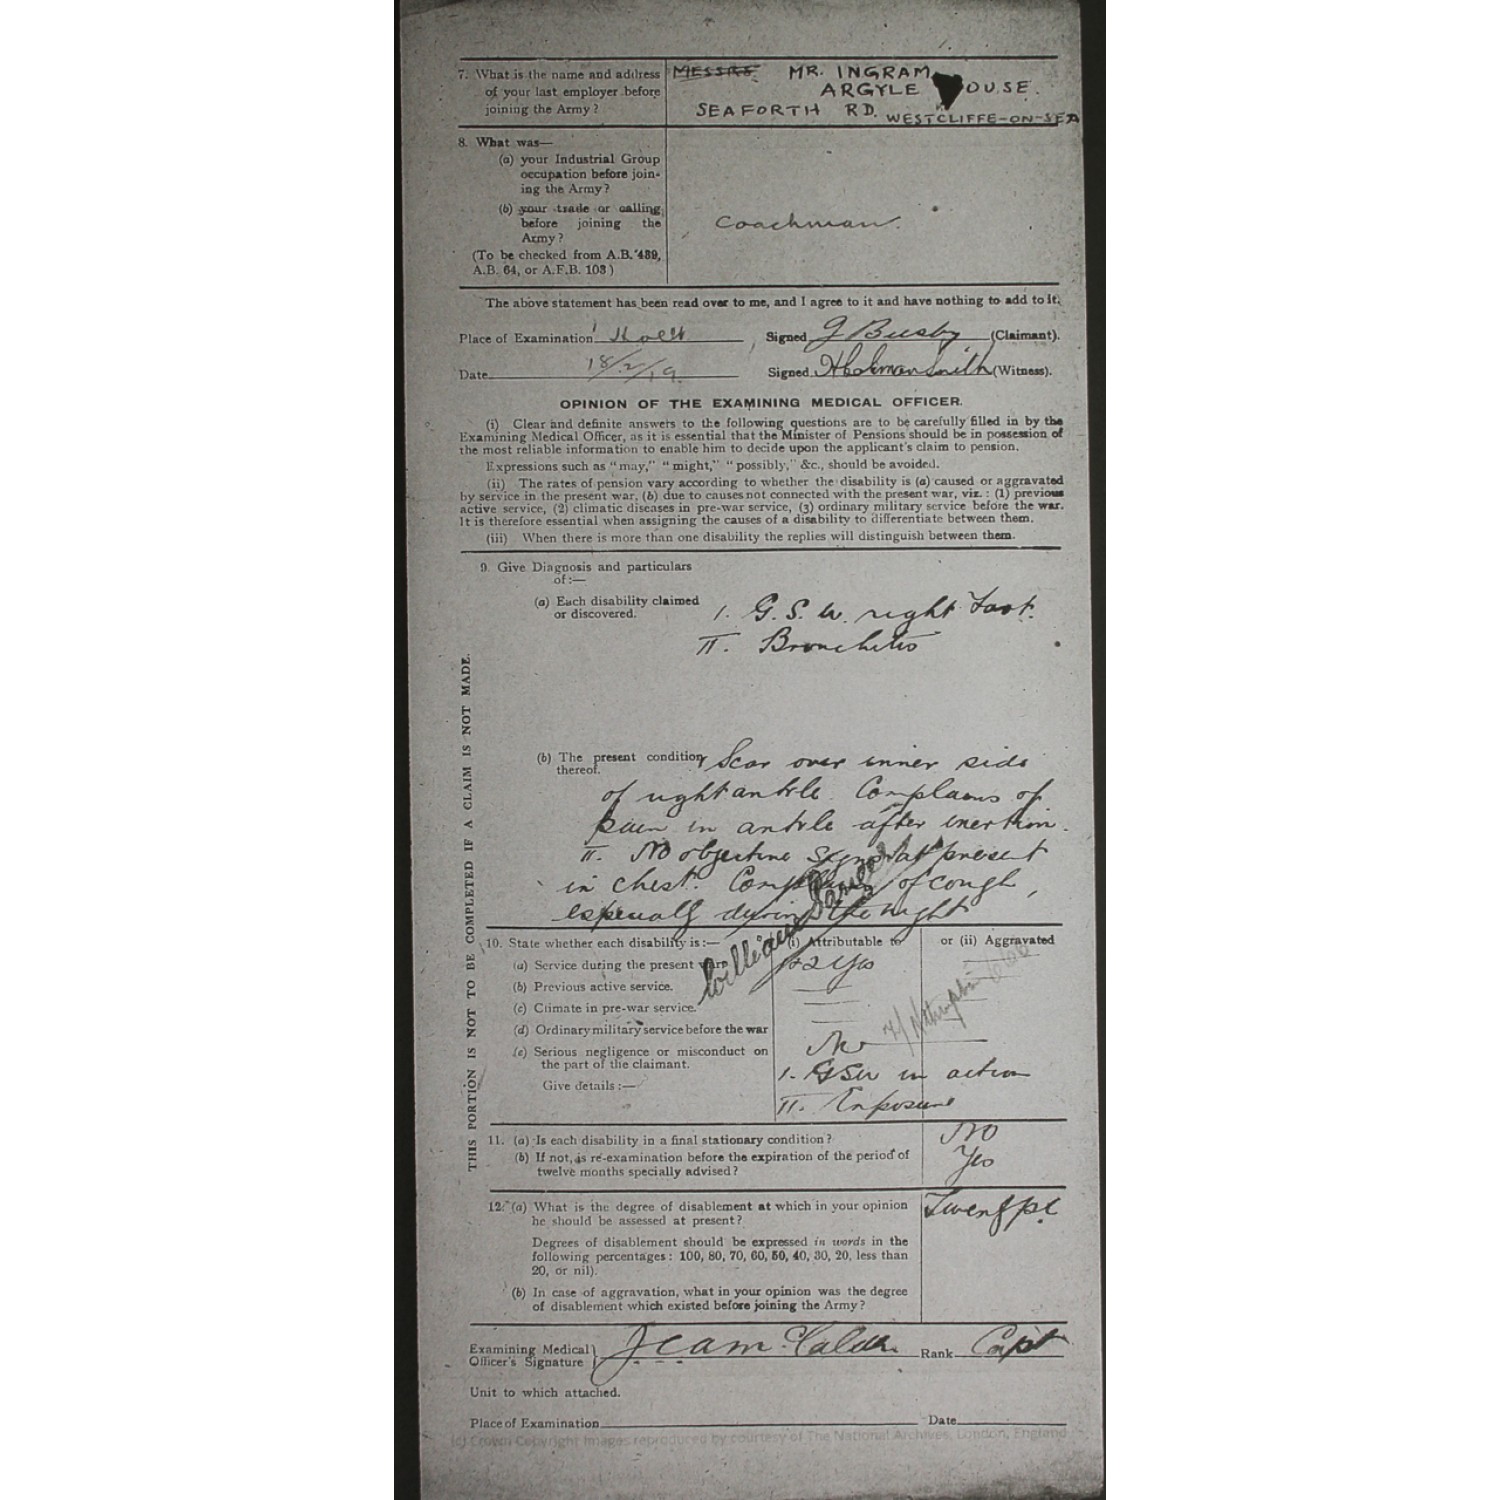 7. What is the name and address
of your last employer before
joining the Army?
MESSRS MR. INGRAM
ARGYLE OUSE.
SEAFORTH RD. WESTCLIFFE-ON-SEA
8. What was—
(a) your Industrial Group
occupation before join-
ing the Army?
(b) your trade or calling
before joining the
Army?
(To be checked from A.B. 439,
A.B. 64, or A.F.B. 103)
Coachman.
The above statement has been read over to me, and I agree to it and have nothing to add to it.
Place of Examination Signed G Busby (Claimant).
Date 18/2/19. Signed Smith (Witness).
OPINION OF THE EXAMINING MEDICAL OFFICER.
(i) Clear and definite answers to the following questions are to be carefully filled in by the
Examining Medical Officer, as it is essential that the Minister of Pensions should be in possession of
the most reliable information to enable him to decide upon the applicant's claim to pension.
Expressions such as "may," "might," "possibly," &c., should be avoided.
(ii) The rates of pension vary according to whether the disability is (a) caused or aggravated
by service in the present war, (b) due to causes not connected with the present war, viz.: (1) previous
active service, (2) climatic diseases in pre-war service, (3) ordinary military service before the war.
It is therefore essential when assigning the causes of a disability to differentiate between them.
(iii) When there is more than one disability the replies will distinguish between them.
THIS PORTION IS NOT TO BE COMPLETED IF A CLAIM IS NOT MADE.
9. Give Diagnosis and particulars
of:—
(a) Each disability claimed
or discovered.
1. G. S. W. right Foot.
II. Bronchitis
(b) The present condition
thereof.
Scar over inner side
of right ankle. Complains of
pain in ankle after exertion.
II. No objective signs at present
in chest. Complains of cough,
especially during the night
10. State whether each disability is:— (i) Attributable to or (ii) Aggravated
(a) Service during the present war 1+2 Yes
(b) Previous active service.
(c) Climate in pre-war service.
(d) Ordinary military service before the war
(e) Serious negligence or misconduct on
the part of the claimant.
No
Give details:—
1. GSW in action
II. Exposure
11. (a) Is each disability in a final stationary condition? No
(b) If not, is re-examination before the expiration of the period of
twelve months specially advised? Yes
12. (a) What is the degree of disablement at which in your opinion
he should be assessed at present?
Twenty pc.
Degrees of disablement should be expressed in words in the
following percentages: 100, 80, 70, 60, 50, 40, 30, 20, less than
20, or nil).
(b) In case of aggravation, what in your opinion was the degree
of disablement which existed before joining the Army?
Examining Medical
Officer's Signature Rank Capt
Unit to which attached.
Place of Examination Date
(c) Crown Copyright Images reproduced by courtesy of The National Archives, London, England